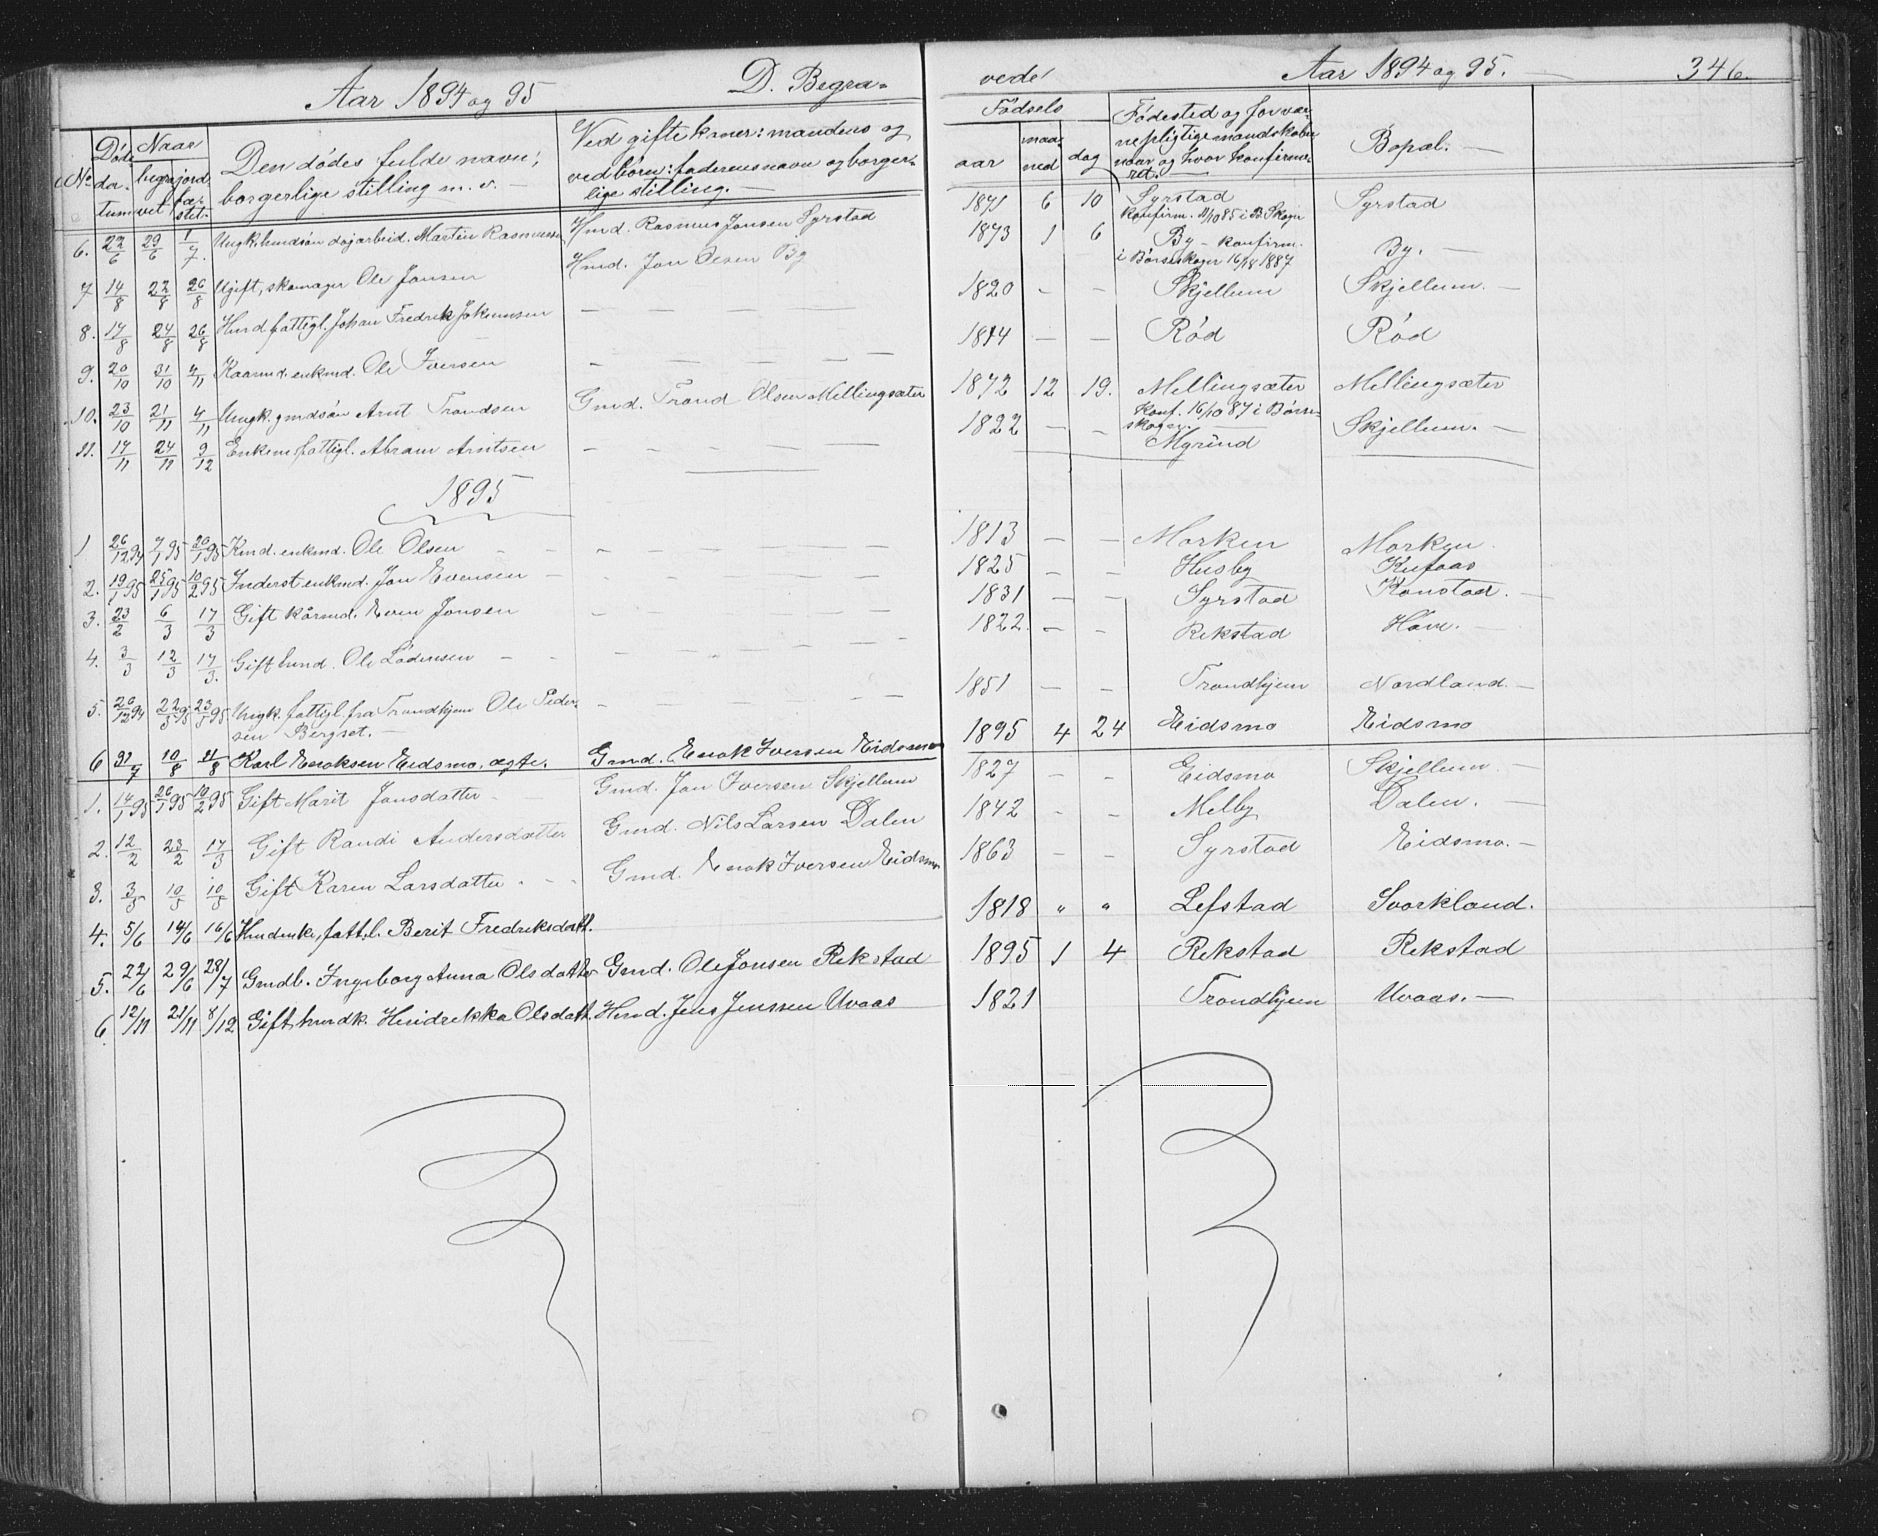 Aar 1894 og 95 D. Begra-
No Døds datum Naar begravet jordfæstet
Den dødes fulde navn,
borgerlige stilling m. v. -
Ved gifte koner: mandens og
ved børn: faderens navn og borger-
lige stilling. -
6. 22/6 29/6 1/7. Ungk. hmdsøn dagarbeid. Martin Rasmussen Hmd. Rasmus Jonsen Syrstad
7 14/8 22/8 26/8 Ugift, skomager Ole Jonsen Hmd. Jon Olsen By
8. 17/8 24/8 26/8 Husmd fattigl. Johan Fredrik Jokumsen — — — —
9. 20/10 31/10 4/11 Kaarmd. enkmd. Ole Iversen — — — —
10. 23/10 21/11 4/11 Ungk. gmdsøn Arnt Trondsen Gmd. Trond Olsen Mellingsæter
11. 17/11 24/11 9/12 Enkem. fattigl. Abram Arntsen — — — —
1895
1 26/12 94 7/1 95 20/1 95 Kmd. enkmd. Ole Olsen — — —
2. 19/1 95 25/1 95 10/2 95 Inderst enkmd. Jon Evensen — — —
3. 23/2 6/3 17/3 Gift kårmd. Even Jonsen — — —
4. 3/3 12/3 17/3. Gift hmd. Ole Lødensen — — —
5. 26/12 94 22/5 95 23/5 95 Ungk. fattigl. fra Trondhjem Ole Peder- — — —
sen Bergset. —
6 31/7 10/8 11/8 Karl Enoksen Eidsmo, ægte. Gmd. Enok Iversen Eidsmo
1. 14/1 95 26/1 95 10/2 95 Gift Marit Jonsdatter - Gmd. Jon Iversen Skjellum
2. 12/2 23/2 17/3 Gift Randi Andersdatter Gmd. Nils Larsen Dalen
3. 3/5 10/5 10/5 Gift Karen Larsdatter. - - Gmd. Enok Iversen Eidsmo
4. 5/6 14/6 16/6 Hmdenke, fattl. Berit Fredriksdatt.
5. 22/6 29/6 28/7 Gmdb. Ingeborg Anna Olsdatter Gmd. Ole Jonsen Rekstad
6. 12/11 21/11 8/12 Gift hmdk. Hendrekka Olsdatt. Hmd. Jens Jenssen Uvaas
vede Aar 1894 og 95. — 346.
Fødsels
aar maaned dag
Fødested og for vær-
nepligtige mandskaber
naar og hvor konfirme-
ret. —
Bopæl. —
1871 6 10 Syrstad Syrstad
konfirm. 11/10 85 i B. Skogn
1873 1 6 By - konfirm. By. —
i Børseskogn 16/10 1887
1820 — — Skjellum Skjellum. —
1814 — — Rød Rød
1872 12 19. Mellingsæter Mellingsæter
Konf. 16/10 87 i Børse-
skogn.
1822 — — Mgrind Skjellum. —
1813 — — Morken Morken.
1825 — — Husby Kufaas
1831 — — Syrstad Konstad. —
1822. — — Rekstad Hove. —
1851 — — Trondhjem Nordland. —
1895 4 24 Eidsmo Eidsmo
1827 - - Eidsmo Skjellum. —
1842 - - Melby Dalen. —
1863 - - Syrstad Eidsmo. —
1818 " " Lefstad Svorkland.
1895 1 4 Rekstad Rekstad
1821 Trondhjem Uvaas. —